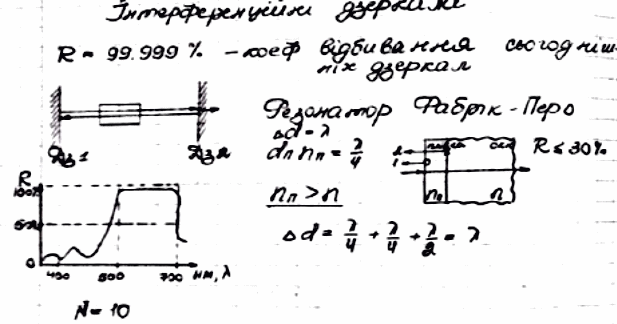 Інтерференційні дзеркала
R = 99.999 % - коеф відбивання сьогодніш-
ніх дзеркал
Резонатор Фабрік-Перо
Δd = λ
dп nп = λ/4
nп > n
Δd = λ/4 + λ/4 + λ/2 = λ
R ≤ 30%
2
1
nп
n
Дз1
Дз2
R
100%
50%
0
400
500
700
нм, λ
N = 10